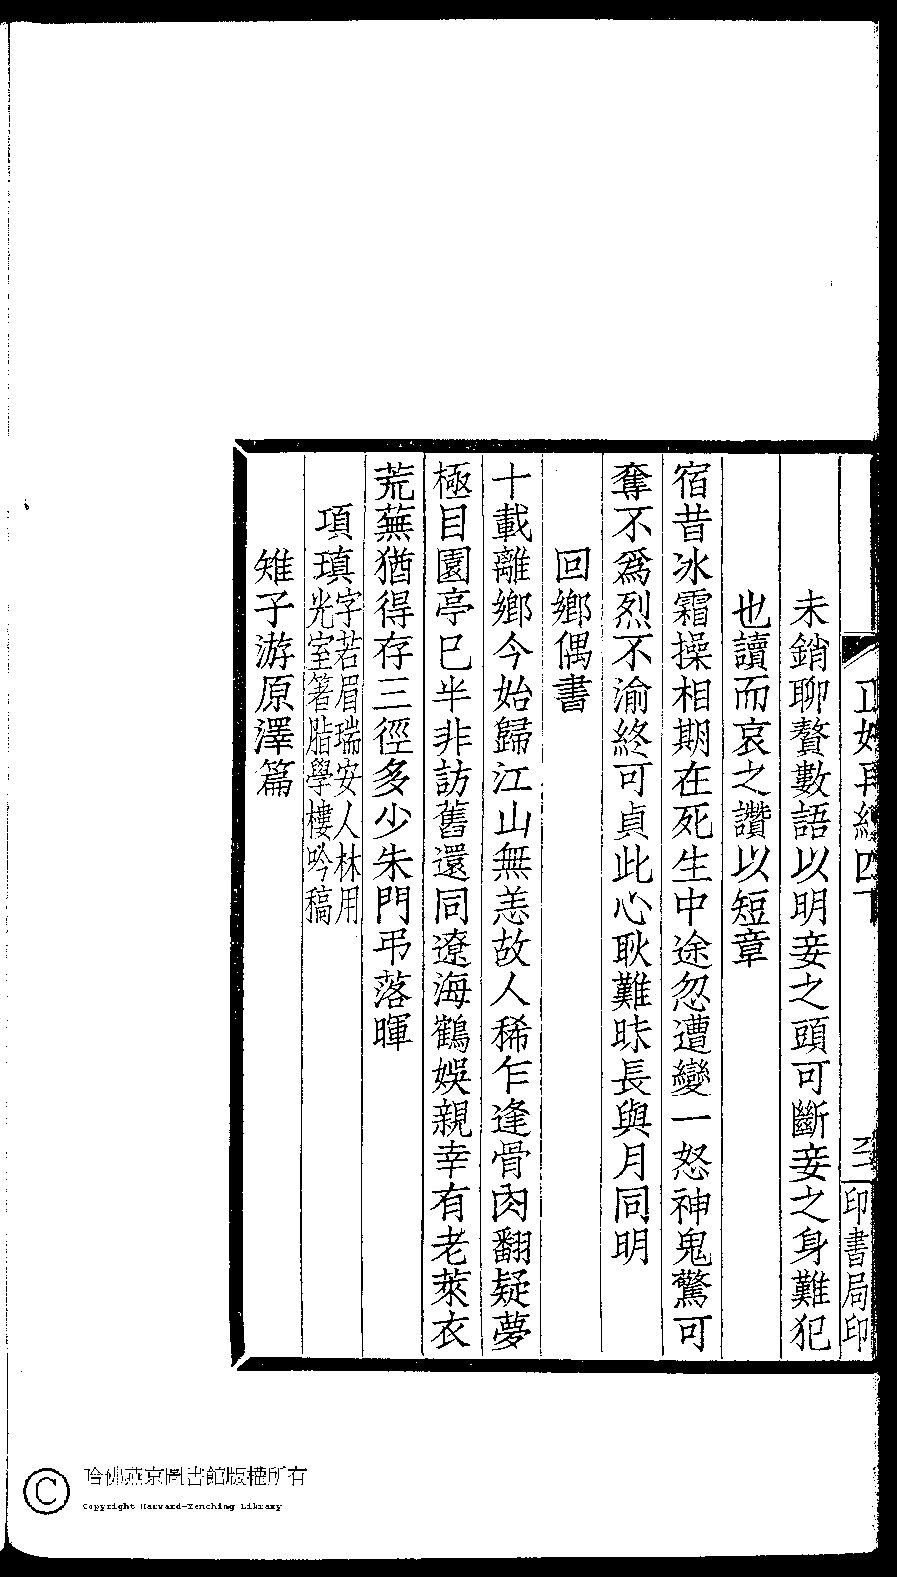 未銷聊贅數語以明妾之頭可斷妾之身難犯
也讀而哀之讚以短章
宿昔冰霜操相期在死生中途忽遭變一怒神鬼驚可
奪不爲烈不渝終可貞此心耿難昧長與月同明
回鄉偶書
十載離鄉今始歸江山無恙故人稀乍逢骨肉翻疑夢
極目園亭巳半非訪舊還同遼海鶴娛親幸有老萊衣
荒蕪猶得存三徑多少朱門弔落暉
項瑱字若眉瑞安人林用
光室箸脂學樓吟稿
雉子游原澤篇
印書局印
哈佛燕京圖書館版權所有
Copyright Harvard-Yenching Library